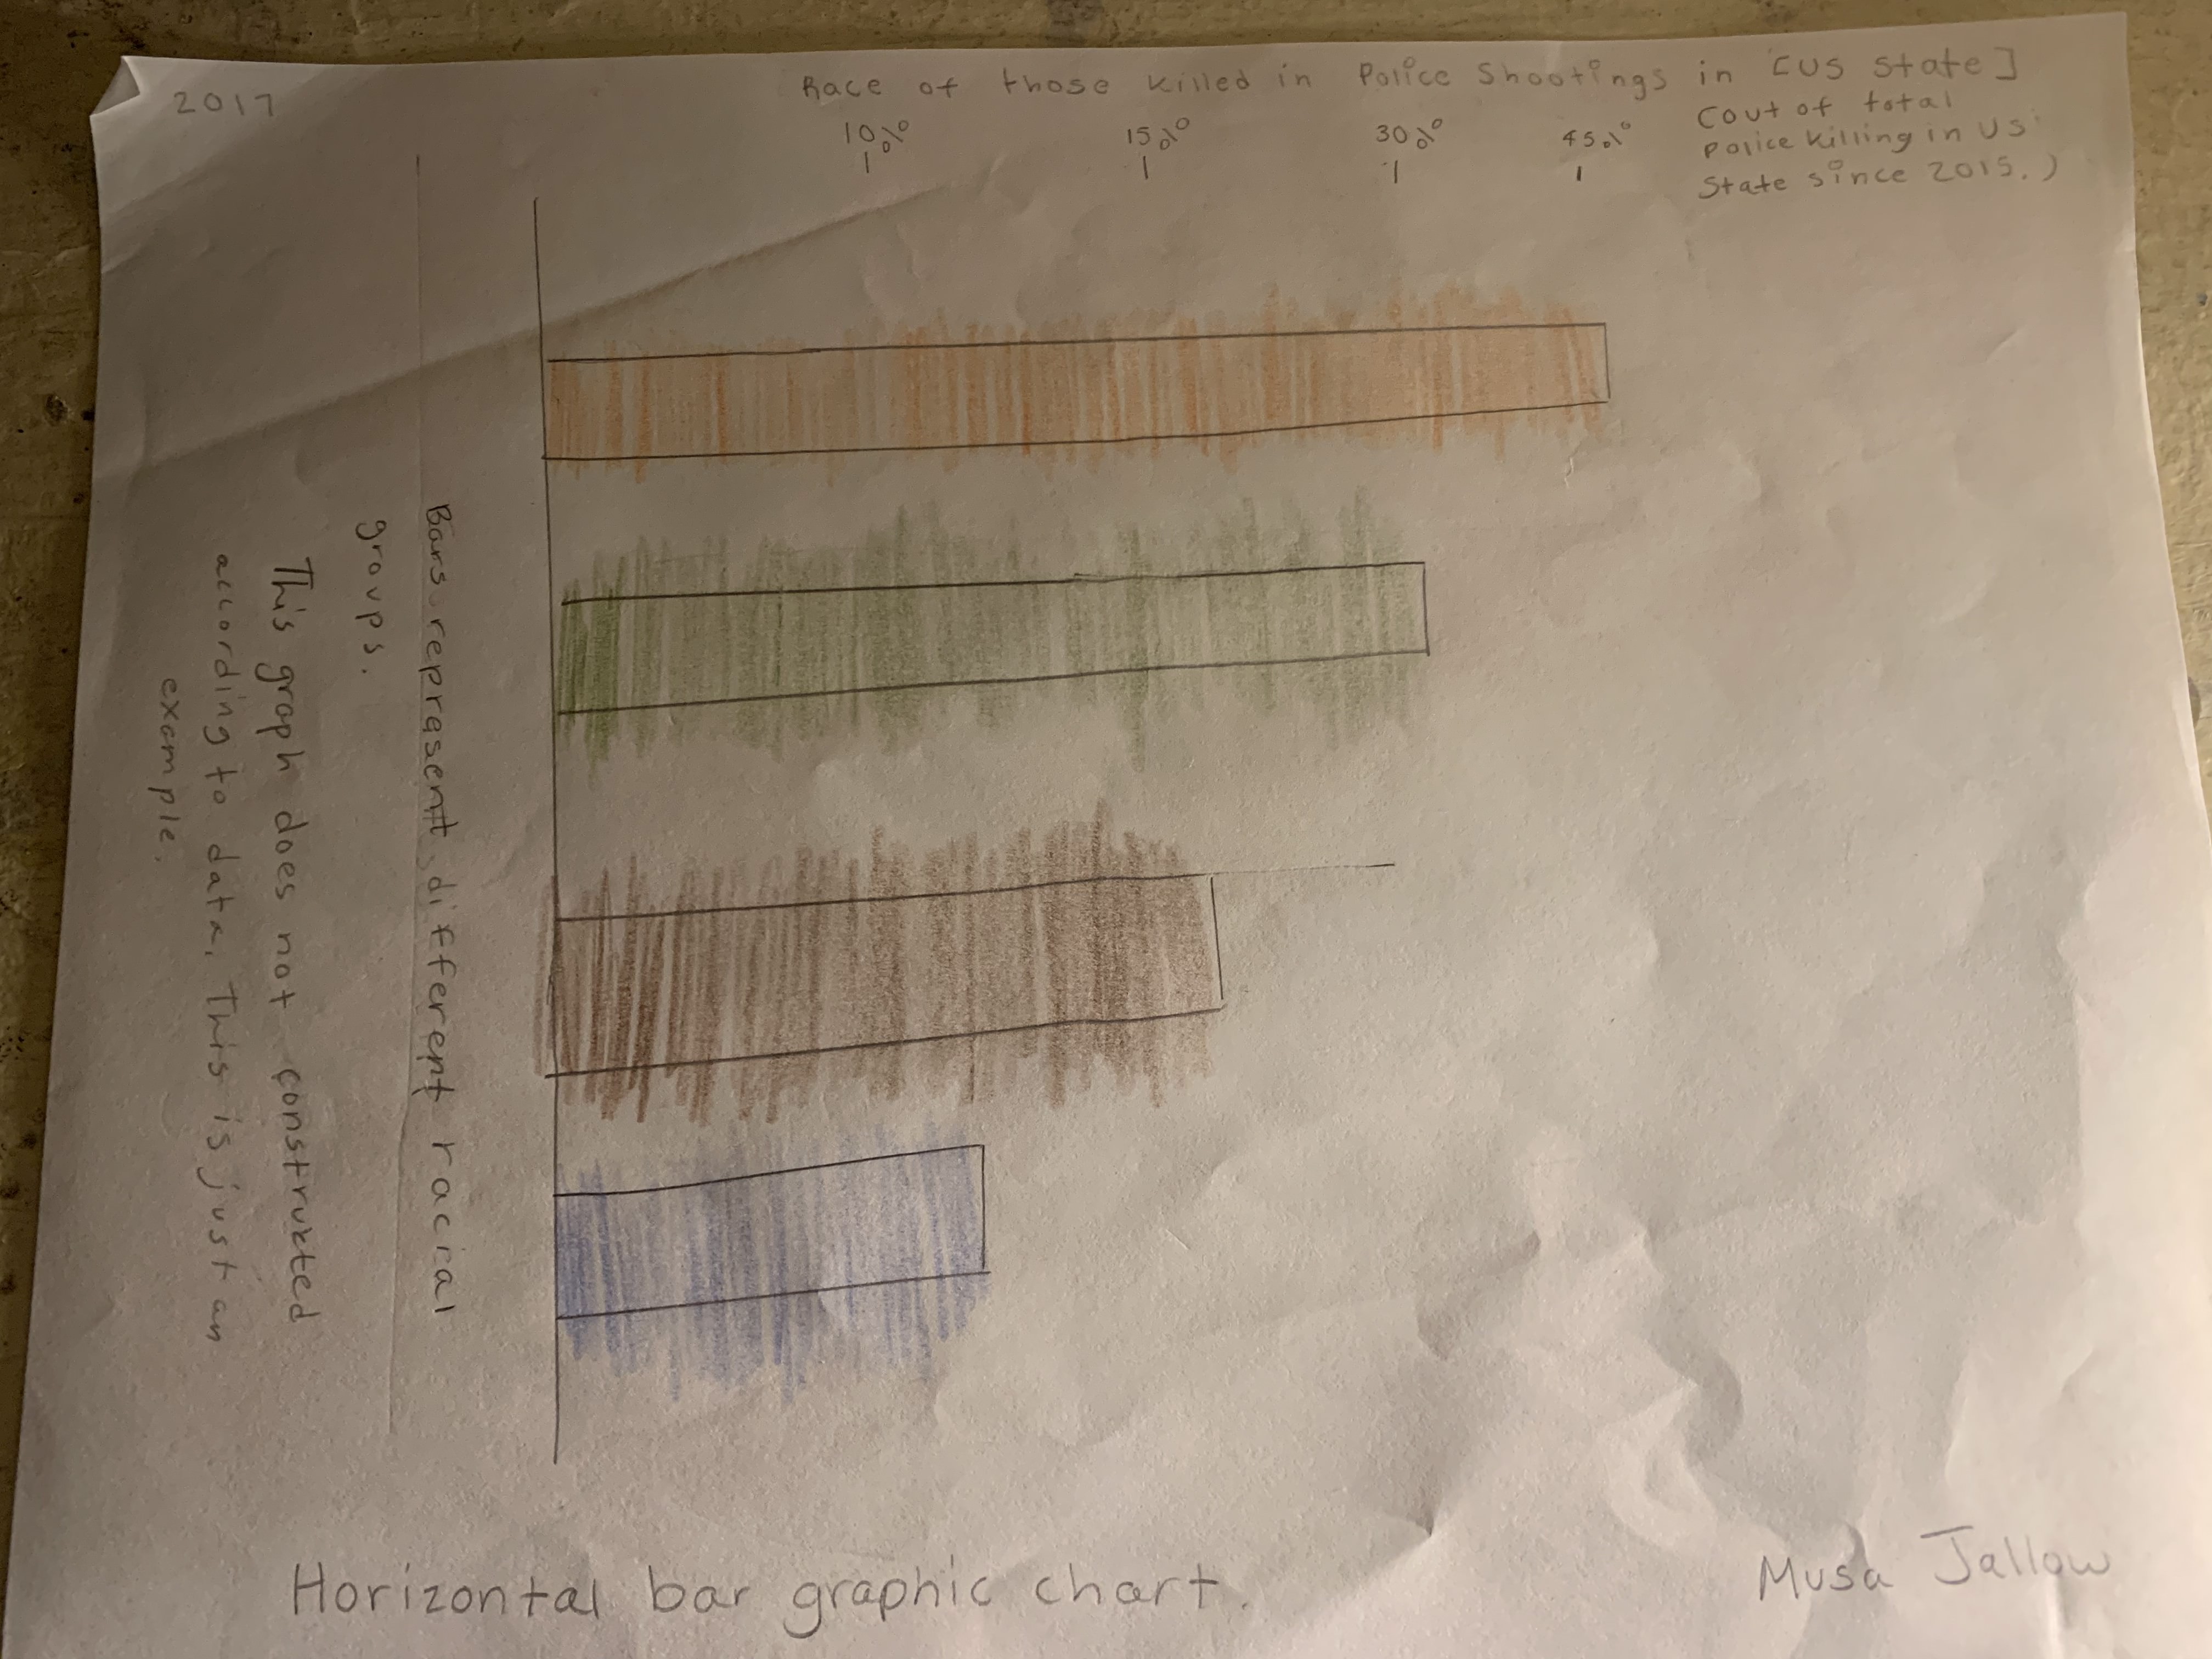 2017
Race of those killed in Police Shootings in [US State]
(out of total
Police Killing in US
State since 2015.)
10%
15%
30%
45%
Bars reprasent different racial
groups.
This graph does not constructed
according to data. This is just an
example.
Horizontal bar graphic chart.
Musa Jallow